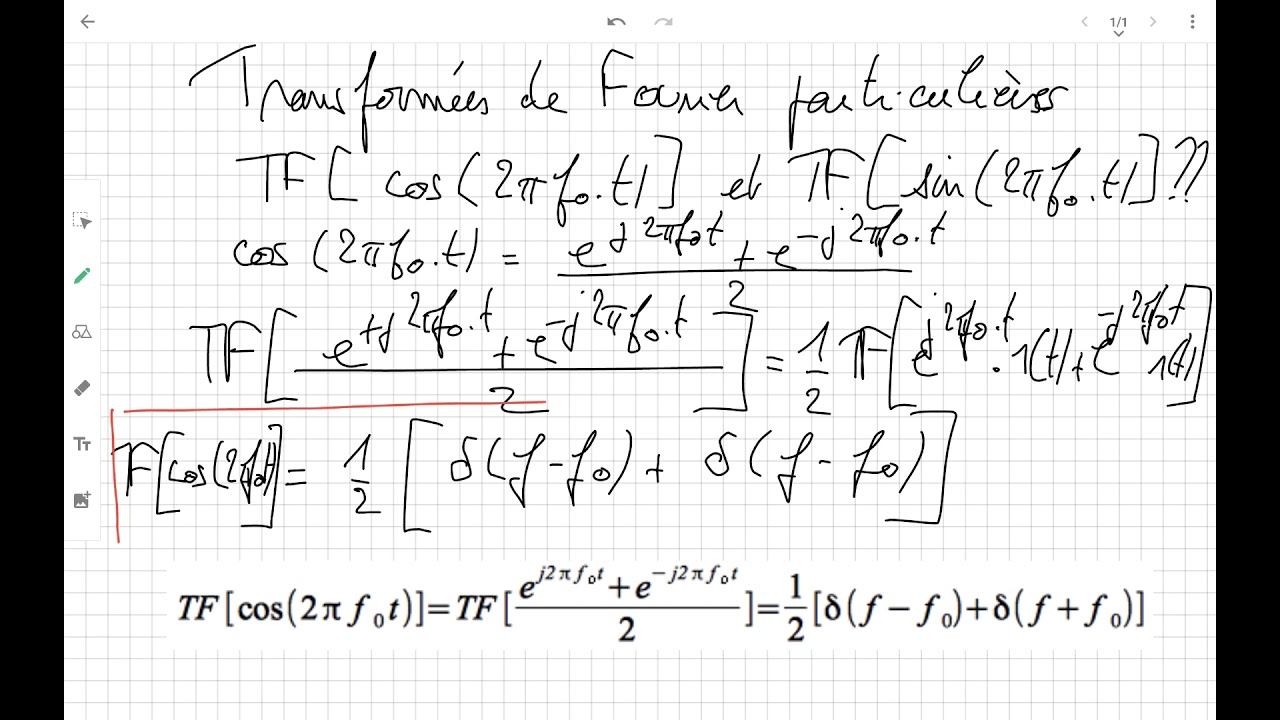 1/1
Transformées de Fourier particulières
TF[cos(2πf₀.t)] et TF[sin(2πf₀.t)]??
cos(2πf₀.t) = (e^(j2πf₀t) + e^(-j2πf₀.t))/2
TF[(e^(+j2πf₀.t) + e^(-j2πf₀.t))/2] = 1/2 TF[e^(j2πf₀.t).1(t) + e^(-j2πf₀t) 1(t)]
TF[cos(2πf₀t)] = 1/2 [δ(f-f₀) + δ(f-f₀)]
TF[cos(2πf₀t)]=TF[(e^(j2πf₀t)+e^(−j2πf₀t))/2]=1/2[δ(f−f₀)+δ(f+f₀)]
Tт